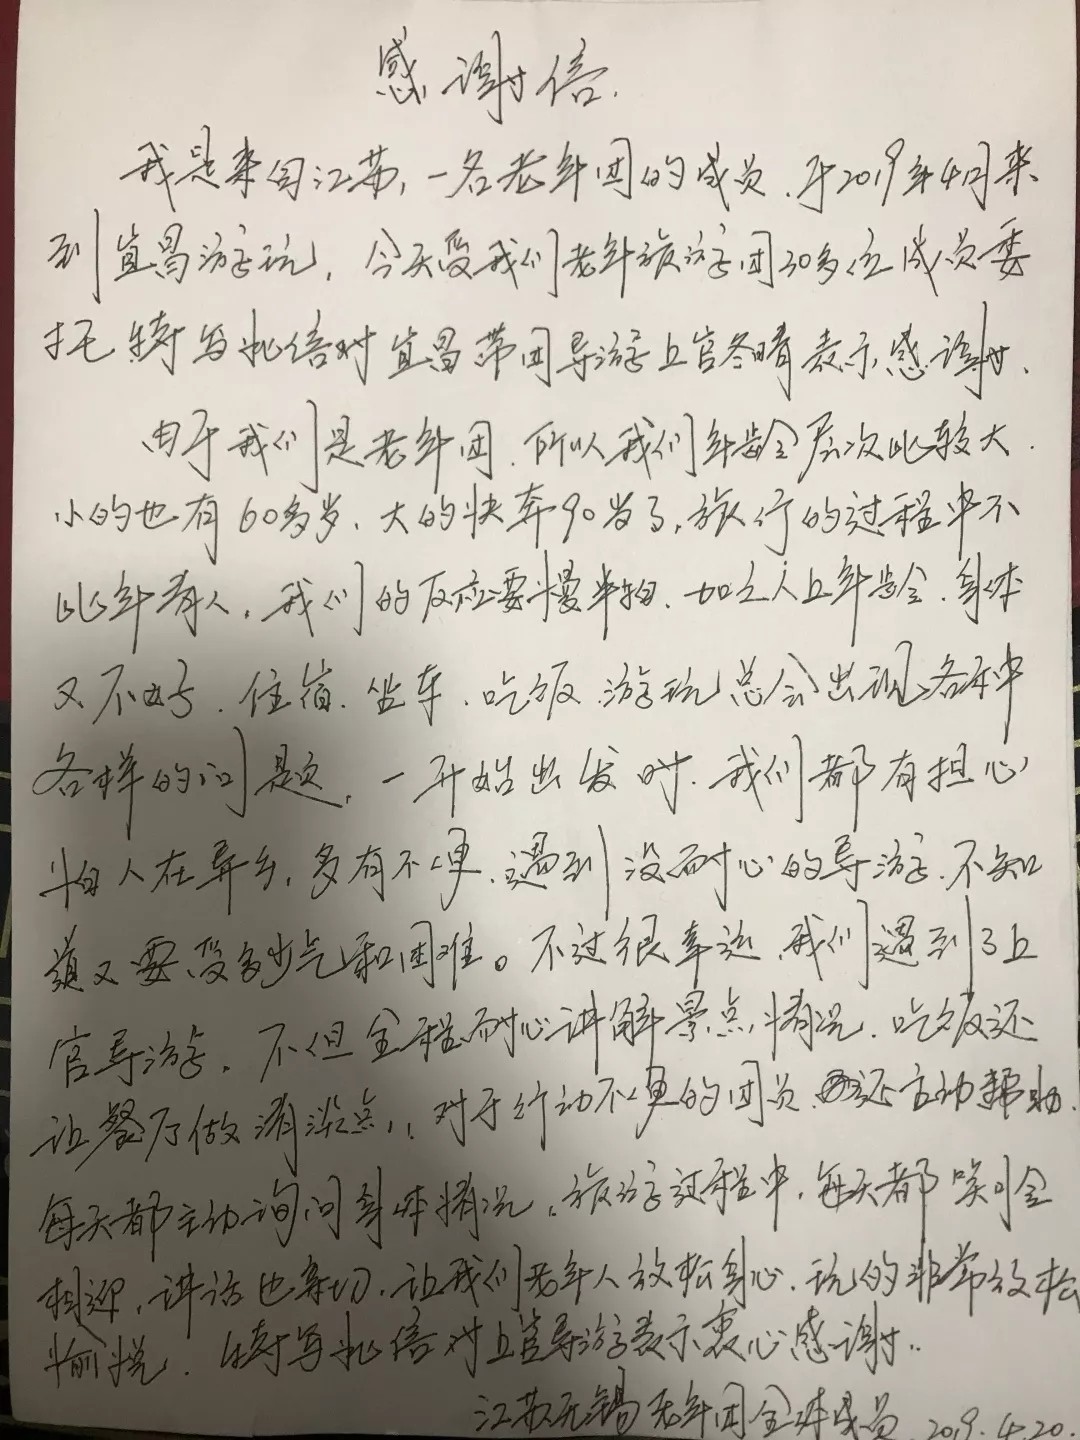 感谢信.
我是来自江苏,一名老年团的成员.于2019年4月来
到宜昌游玩,今天受我们老年旅游团30多位成员委
托特写此信对宜昌带团导游上官冬晴表示感谢.
由于我们是老年团.所以我们年龄层次比较大.
小的也有60多岁.大的快奔90岁了,旅行的过程中不
比年青人,我们的反应要慢半拍.加之人上年龄.身体
又不好.住宿.坐车.吃饭.游玩总会出现各种
各样的问题,一开始出发时.我们都有担心
怕人在异乡,多有不便.遇到没耐心的导游.不知
道又要受多少气和困难。不过很幸运.我们遇到了上
官导游,不但全程耐心讲解景点情况.吃饭还
让餐厅做清淡点,对于行动不便的团员.还主动帮助.
每天都主动询问身体情况,旅游过程中,每天都笑脸
相迎,讲话也亲切,让我们老年人放松身心.玩的非常放松
愉悦.特写此信对上官导游表示衷心感谢..
江苏无锡老年团全体成员 2019.4.20.